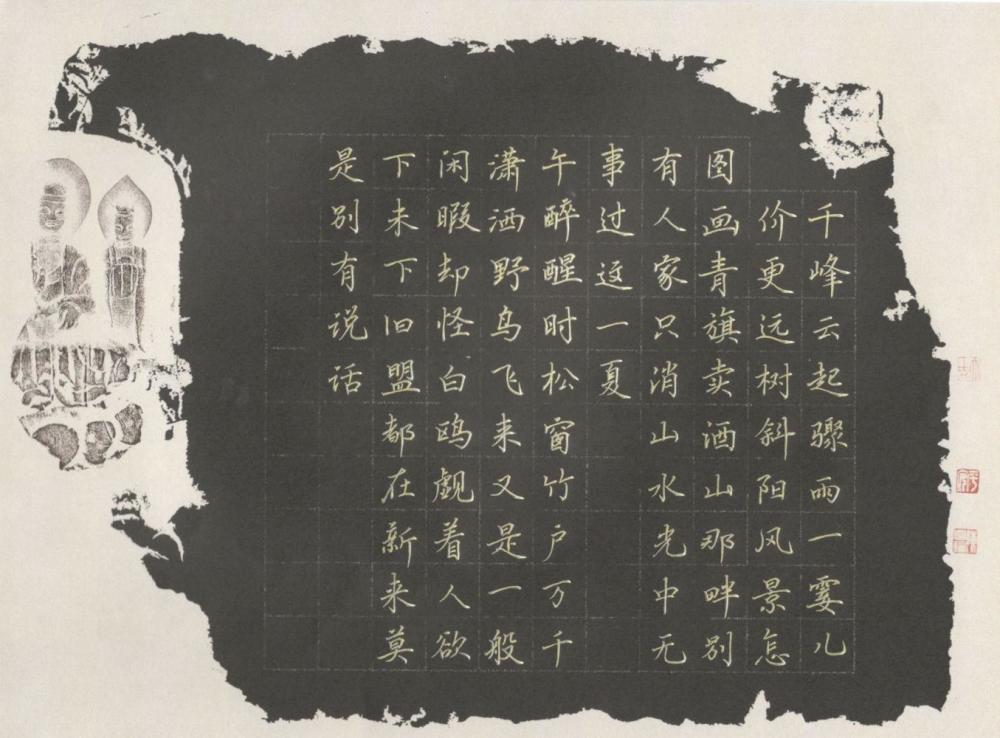 千峰云起骤雨一霎儿
价更远树斜阳风景怎
图画青旗卖酒山那畔别
有人家只消山水光中无
事过这一夏
午醉醒时松窗竹户万千
潇洒野鸟飞来又是一般
闲暇却怪白鸥觑着人欲
下未下旧盟都在新来莫
是别有说话